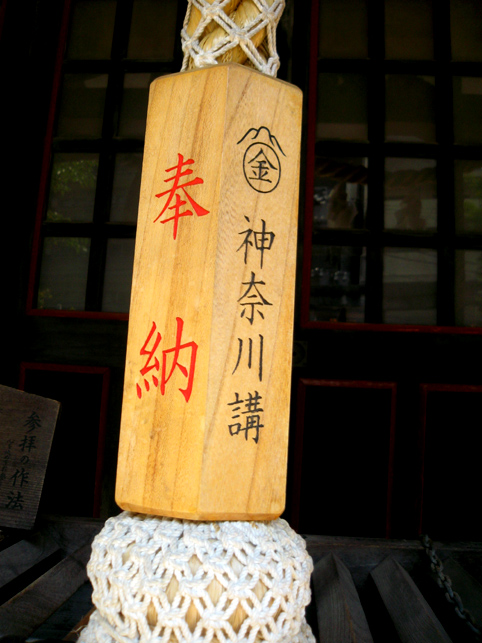 奉納
金
神奈川講
参拝の作法